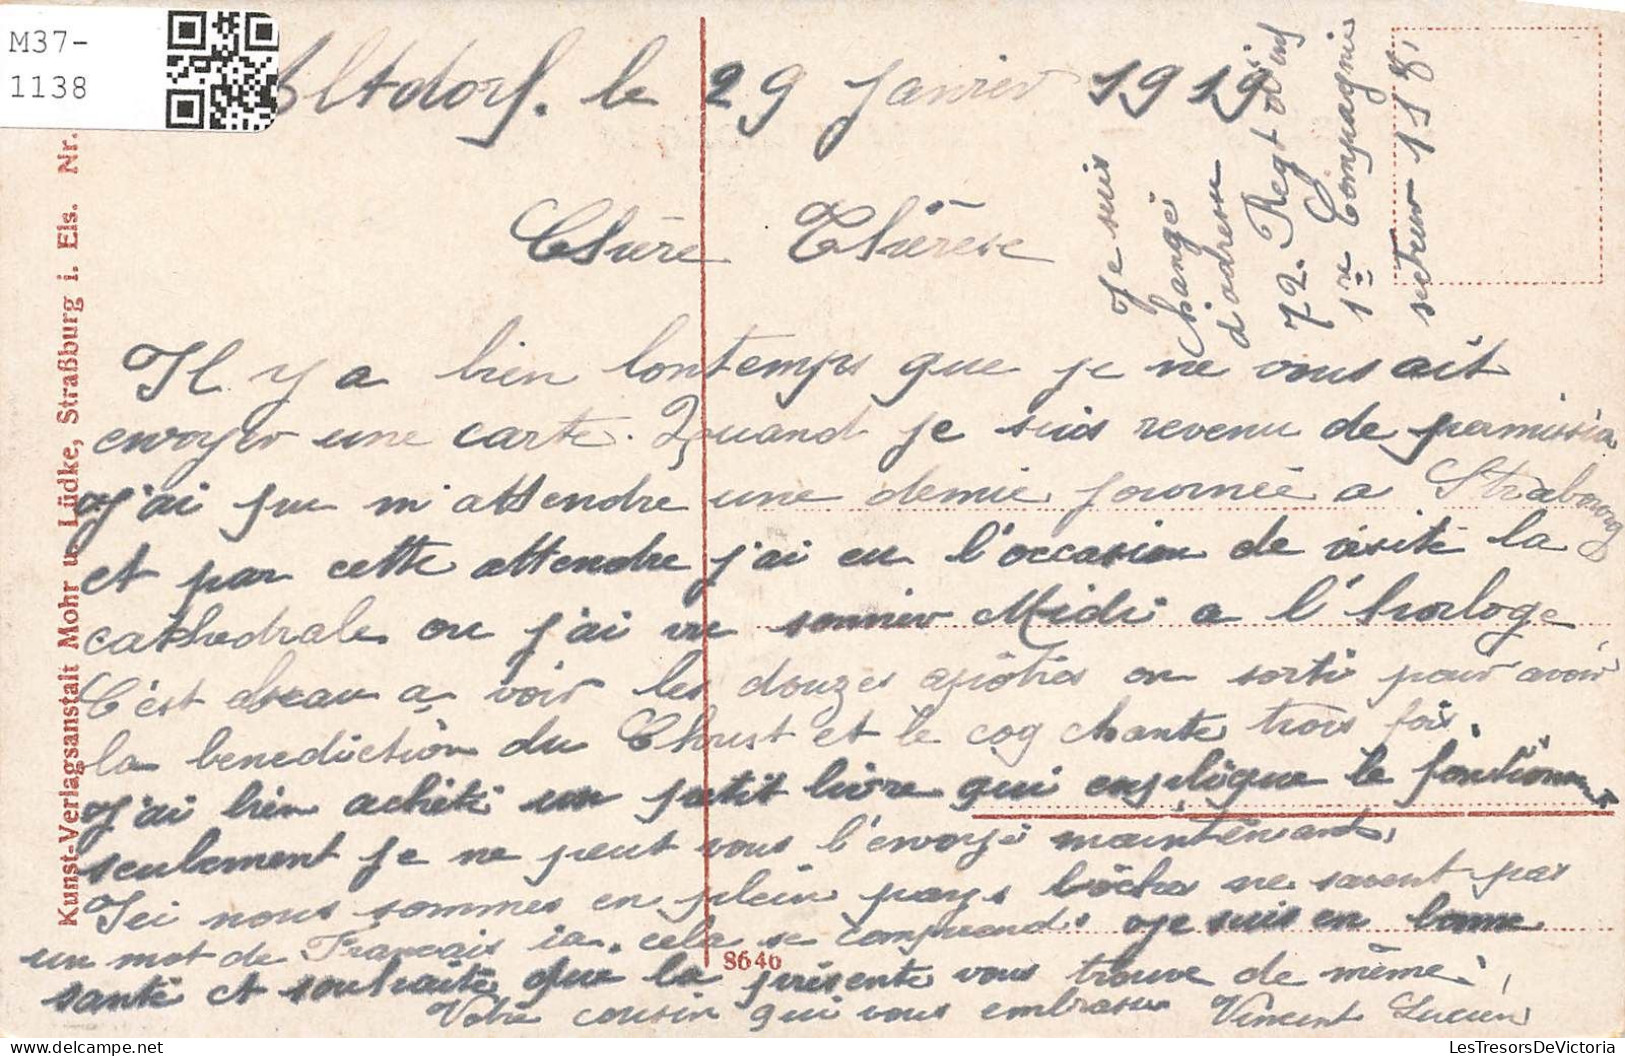 M37-
1138
Altdorf. le 29 Janvier 1919
Je suis
changé
d'adresse
72. Regt d'inf
1re Compagnie
secteur 118.
Chère Thérèse
Il y a bien lontemps que je ne vous ait
envoyer une carte. Quand je suis revenu de permission
j'ai pu m'attendre une demie journée a Strabourg
et par cette attendre j'ai eu l'occasion de visité la
cathedrale ou j'ai vu sonnier Midi a l'horloge
C'est beau a voir les douzes apôtres on sorti pour avoir
la benediction du Christ et le coq chante trois fois.
J'ai bien acheté un petit livre qui explique le fontionn
seulement je ne peut vous l'envoyé maintenant.
Ici nous sommes en plein pays boche ne savent pas
un mot de Francais ia. cela se comprend. Je suis en bonne
santé et souhaite que la présente vous trouve de même.
Votre cousin qui vous embrasse Vincent Lucien
Kunst-Verlagsanstalt Mohr u. Lüdke, Straßburg i. Els. Nr.
8646
LesTresorsDeVictoria.com